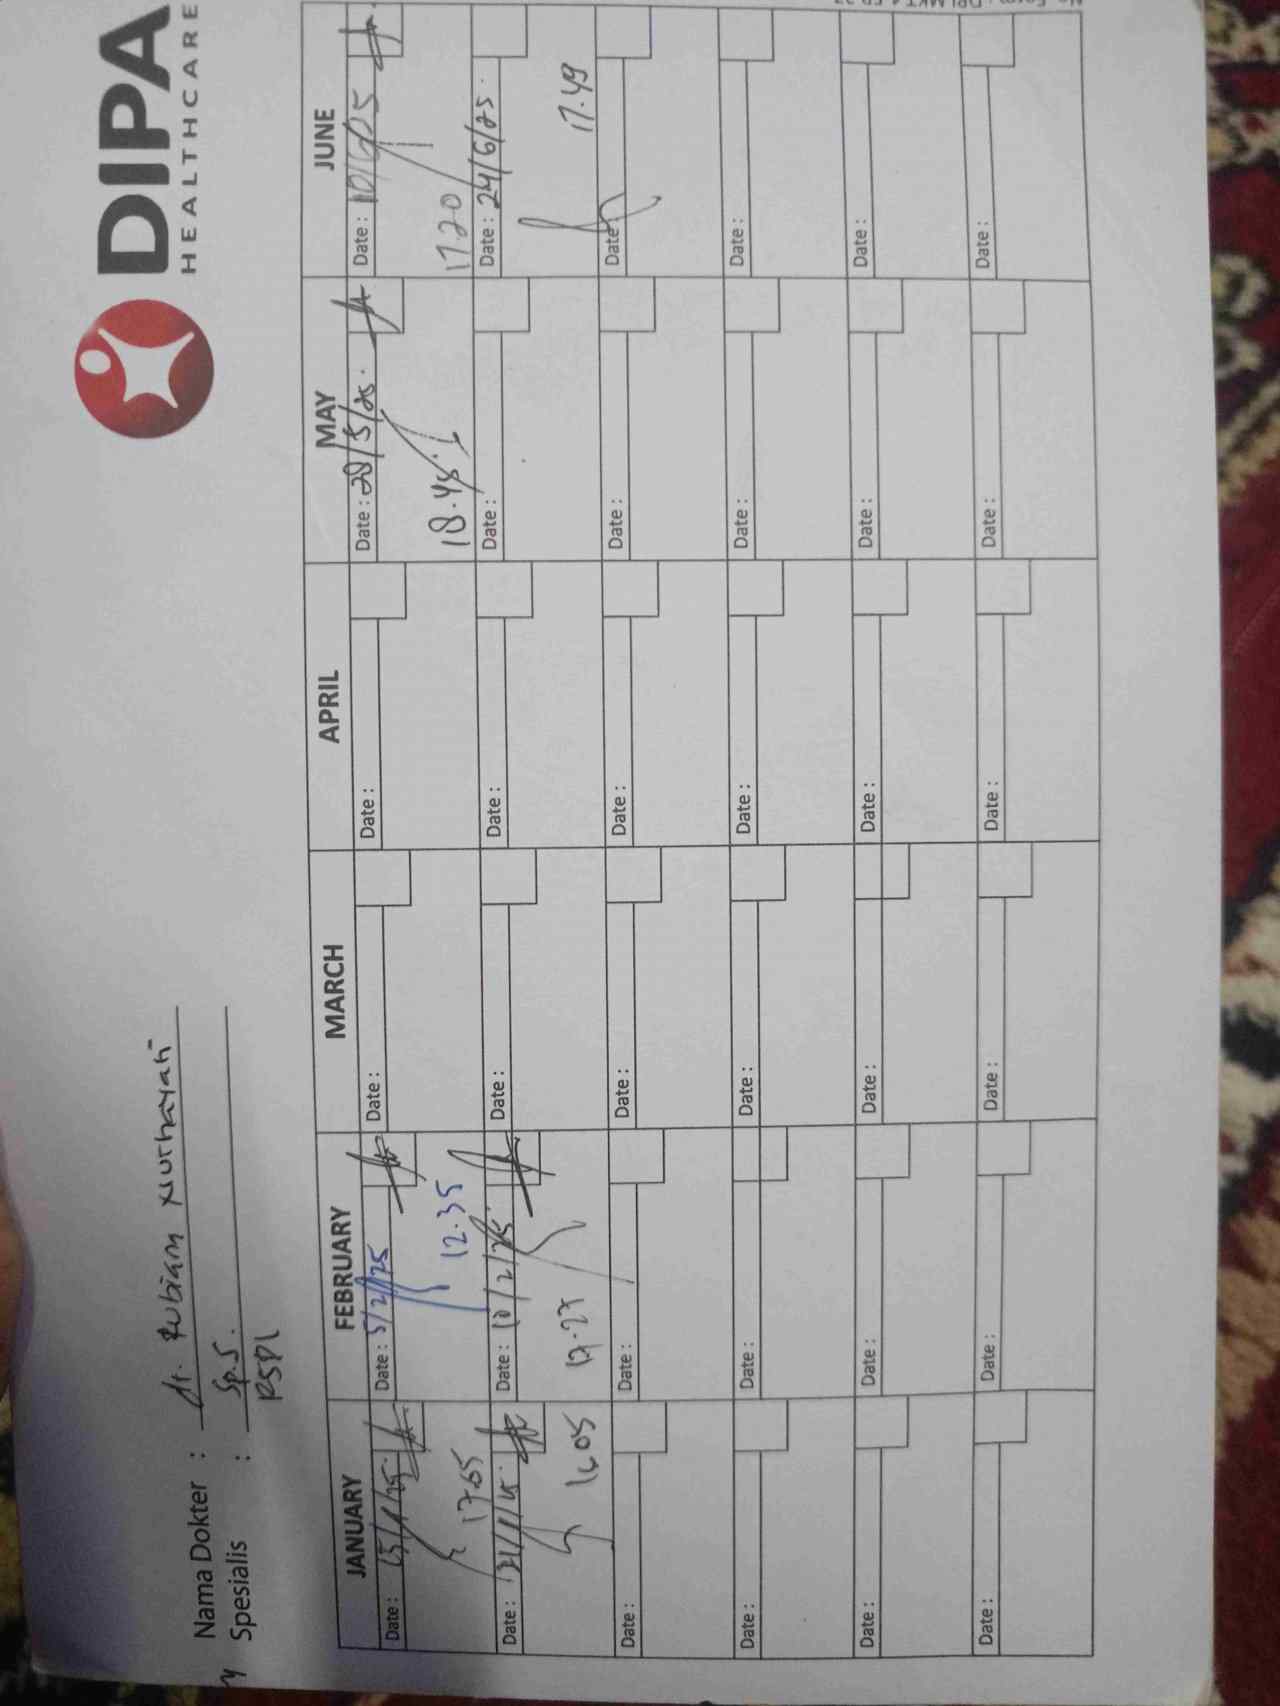 DIPA
HEALTHCARE
Nama Dokter : dr. Rubiana Nurhayati
Spesialis : Sp.S.
RSPL
JANUARY FEBRUARY MARCH APRIL MAY JUNE
Date : 15/1/25. Date : 5/2/25 Date : Date : Date : 28/5/25. Date : 10/6/25
12.35 18.45 17.20
Date : Date : 10/2/25. Date : Date : Date : Date : 24/6/25.
16.05 17.27 17.49
Date : Date : Date : Date : Date : Date :
Date : Date : Date : Date : Date : Date :
Date : Date : Date : Date : Date : Date :
Date : Date : Date : Date : Date : Date :